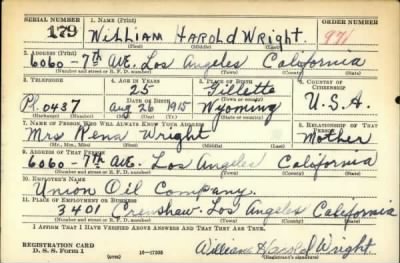 SERIAL NUMBER 1. NAME (Print) ORDER NUMBER
179 William Harold Wright. 971
(First) (Middle) (Last)
2. ADDRESS (Print)
6060-7th Ave. Los Angeles California
(Number and street or R. F. D. number) (Town) (County) (State)
3. TELEPHONE 4. AGE IN YEARS 5. PLACE OF BIRTH 6. COUNTRY OF CITIZENSHIP
25 Gillette
DATE OF BIRTH (Town or county)
Ph. 0437 Aug 26 1915 Wyoming U.S.A.
(Exchange) (Number) (Mo.) (Day) (Yr.) (State or country)
7. NAME OF PERSON WHO WILL ALWAYS KNOW YOUR ADDRESS 8. RELATIONSHIP OF THAT PERSON
Mrs Rena Wright Mother
(Mr., Mrs., Miss) (First) (Middle) (Last)
9. ADDRESS OF THAT PERSON
6060-7th Ave. Los Angeles California
(Number and street or R. F. D. number) (Town) (County) (State)
10. EMPLOYER'S NAME
Union Oil Company.
11. PLACE OF EMPLOYMENT OR BUSINESS
3401 Crenshaw-Los Angeles California
(Number and street or R. F. D. number) (Town) (County) (State)
I AFFIRM THAT I HAVE VERIFIED ABOVE ANSWERS AND THAT THEY ARE TRUE.
REGISTRATION CARD
D. S. S. Form 1 (over) William Harold Wright.
(Registrant's signature)